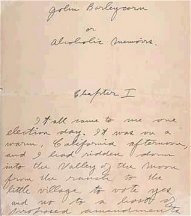 John Barleycorn
or
Alcoholic Memoirs.
Chapter I
It all came to me one
election day. It was on a
warm, California afternoon,
and I had ridden down
into the Valley of the Moon
from the ranch to the
little village to vote yes
and no to a host of
proposed amendments